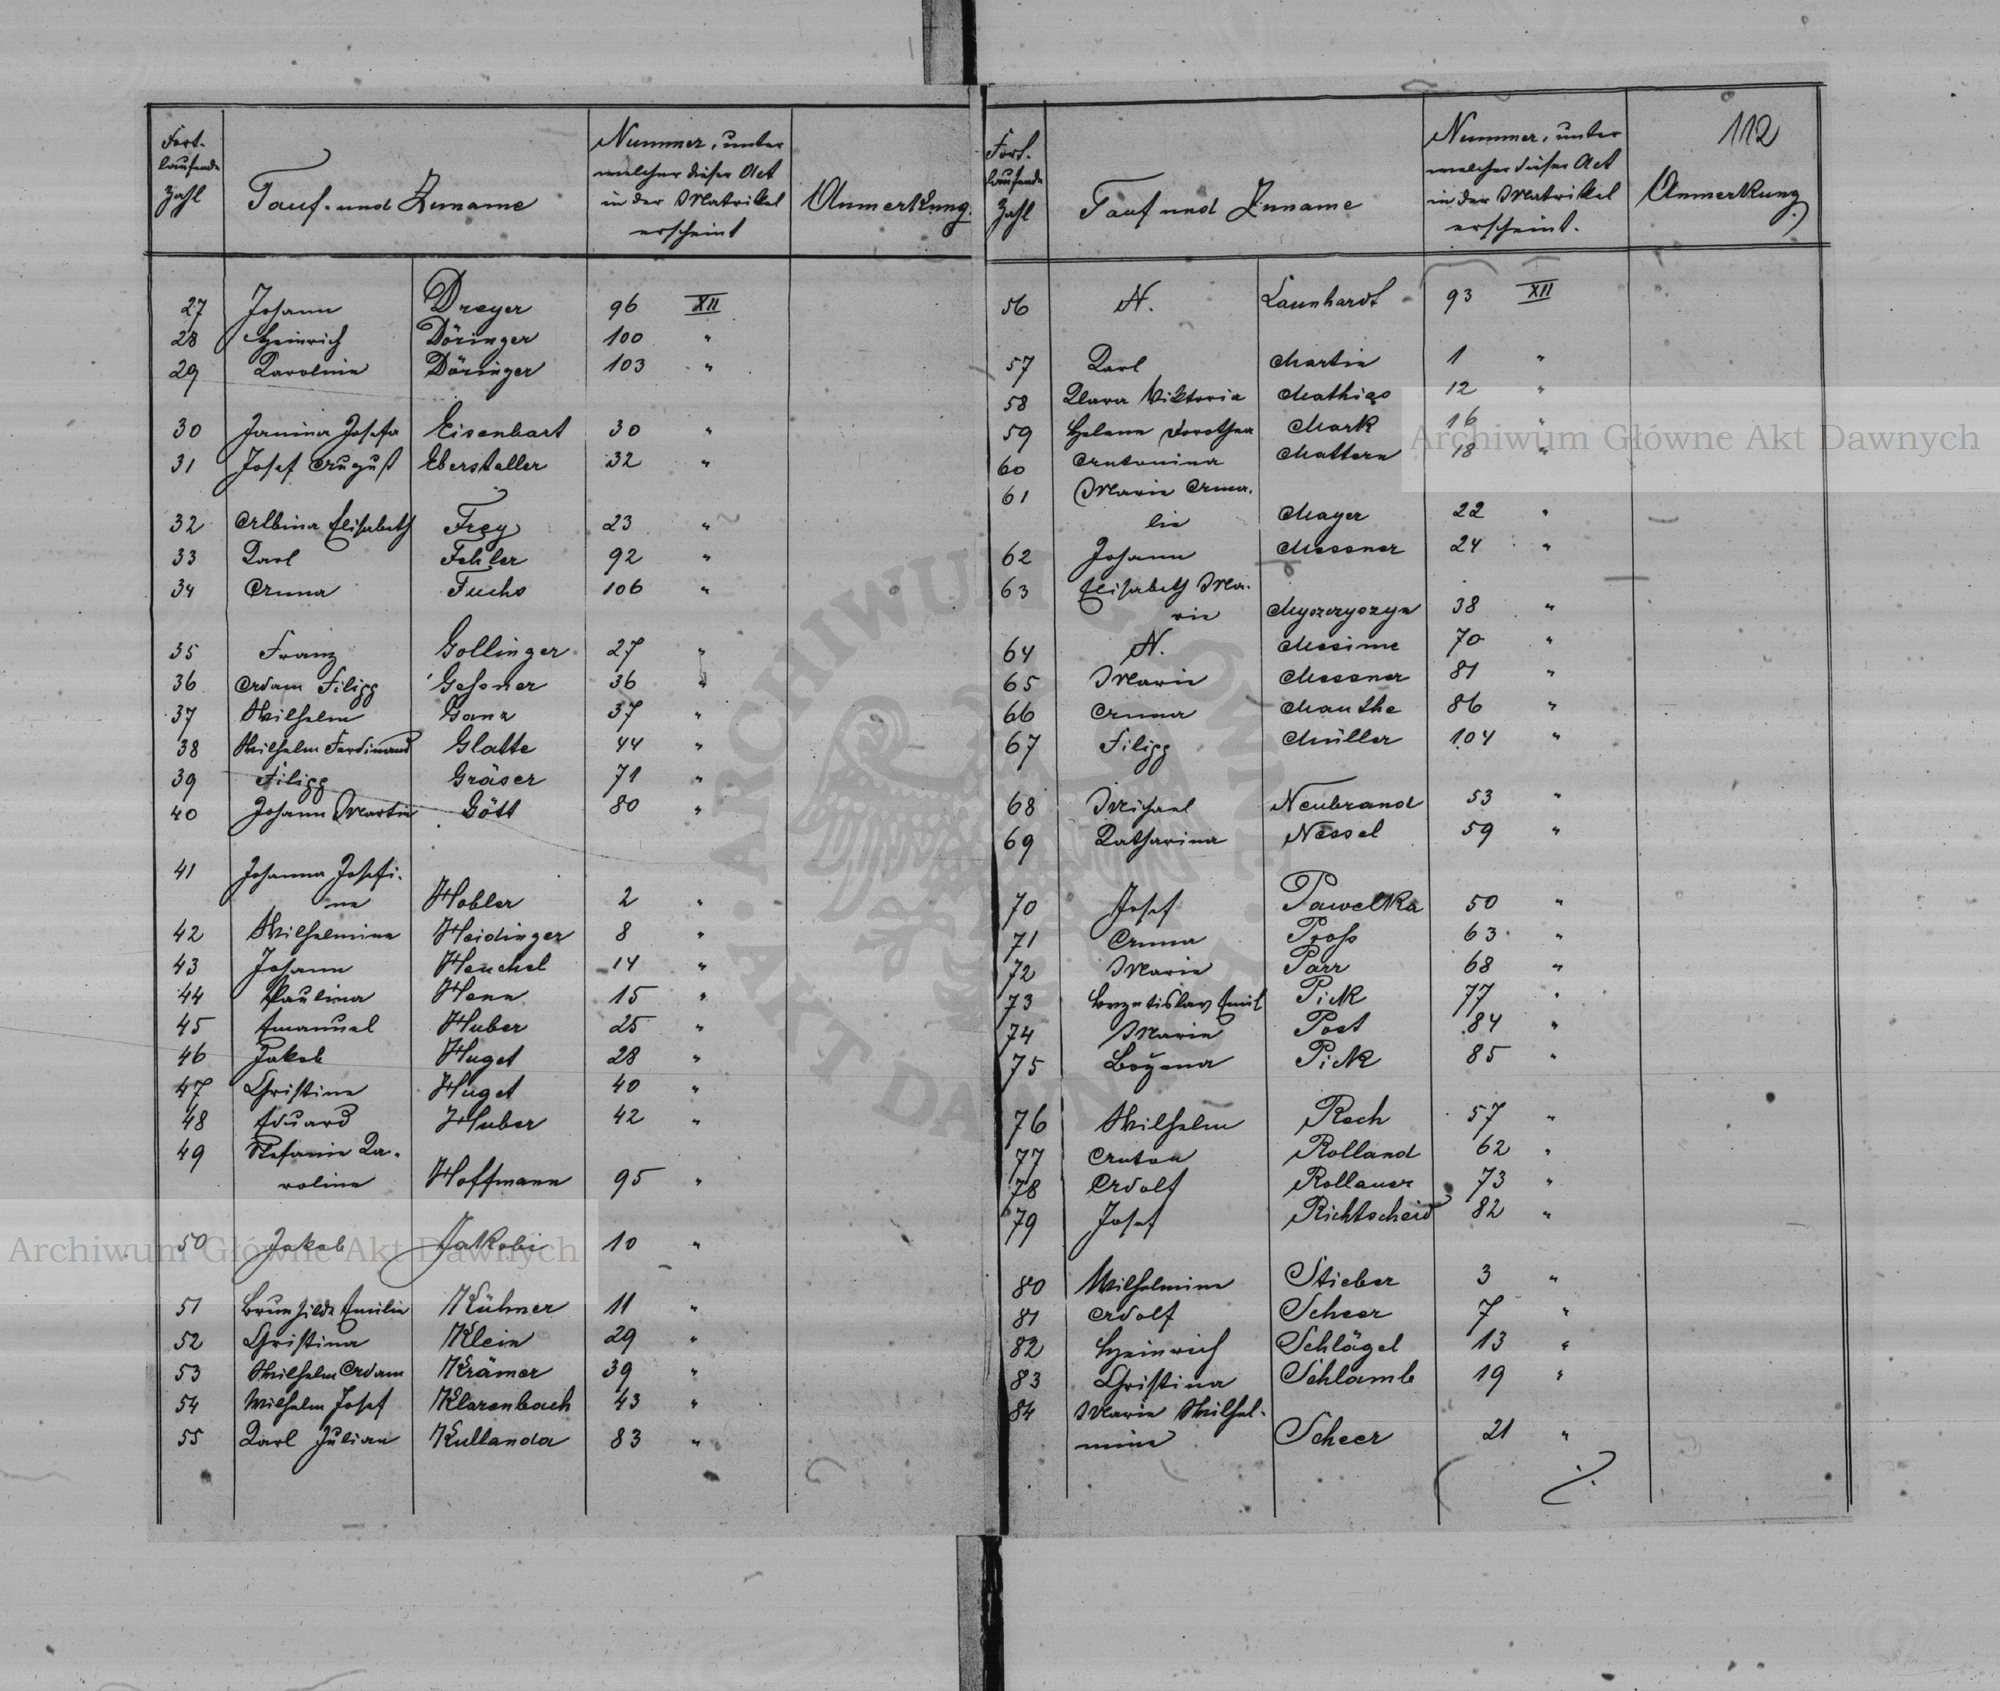 Fort-
laufende
Zahl
Tauf- und Zuname
Nummer, unter
welcher dieser Act
in der Matrikel
erscheint
Anmerkung.
27 Johann Dreyer 96 XII
28 Heinrich Döringer 100 "
29 Karoline Döringer 103 "
30 Janina Josefa Eisenbart 30 "
31 Josef August Ebersteller 32 "
32 Albina Elisabeth Frey 23 "
33 Karl Fehler 92 "
34 Anna Fuchs 106 "
35 Franz Gollinger 27 "
36 Adam Filipp Gessner 36 "
37 Wilhelm Ganz 37 "
38 Wilhelm Ferdinand Glatte 44 "
39 Filipp Gräser 71 "
40 Johann Martin Gött 80 "
41 Johanna Josefi-
ne Hobler 2 "
42 Wilhelmine Heidinger 8 "
43 Johann Heuchel 14 "
44 Paulina Henn 15 "
45 Emanuel Huber 25 "
46 Jakob Huget 28 "
47 Christine Huget 40 "
48 Eduard Huber 42 "
49 Stefanie Ka-
roline Hoffmann 95 "
50 Jakob Jakobi 10 "
51 Brunhilde Emilie Kühner 11 "
52 Christina Klein 29 "
53 Wilhelm Adam Krämer 39 "
54 Wilhelm Josef Klarenbach 43 "
55 Karl Julian Kullanda 83 "
112
Fort-
laufende
Zahl
Tauf und Zuname
Nummer, unter
welcher dieser Act
in der Matrikel
erscheint.
Anmerkung.
56 N. Launhardt 93 XII
57 Karl Martin 1 "
58 Klara Viktoria Mathias 12 "
59 Helene Dorothea Mark 16 "
60 Antonina Mattern 18 "
61 Marie Ama-
lie Mayer 22 "
62 Johann Messner 24 "
63 Elisabeth Ma-
rie Myszczyszyn 38 "
64 N. Messime 70 "
65 Marie Messner 81 "
66 Anna Manthe 86 "
67 Filipp Müller 104 "
68 Michael Neubrand 53 "
69 Katharina Nessel 59 "
70 Josef Pawelka 50 "
71 Anna Pross 63 "
72 Marie Parr 68 "
73 Brzetislav Emil Pick 77 "
74 Marie Post 84 "
75 Božena Pick 85 "
76 Wilhelm Rech 57 "
77 Anton Rolland 62 "
78 Adolf Rollauer 73 "
79 Josef Richtscheid 82 "
80 Wilhelmine Stieber 3 "
81 Adolf Scheer 7 "
82 Heinrich Schlägel 13 "
83 Christina Schlamb 19 "
84 Marie Wilhel-
mine Scheer 21 "
./.
Archiwum Główne Akt Dawnych
Archiwum Główne Akt Dawnych
ARCHIWUM GŁÓWNE
AKT DAWNYCH